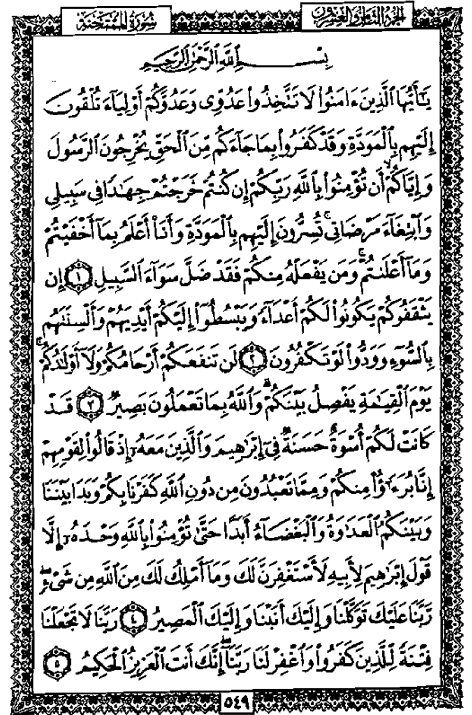 الجزء الثامن والعشرون
سورة الممتحنة
بسم الله الرحمن الرحيم
يَٰٓأَيُّهَا ٱلَّذِينَ ءَامَنُوا۟ لَا تَتَّخِذُوا۟ عَدُوِّى وَعَدُوَّكُمْ أَوْلِيَآءَ تُلْقُونَ
إِلَيْهِم بِٱلْمَوَدَّةِ وَقَدْ كَفَرُوا۟ بِمَا جَآءَكُم مِّنَ ٱلْحَقِّ يُخْرِجُونَ ٱلرَّسُولَ
وَإِيَّاكُمْ ۙ أَن تُؤْمِنُوا۟ بِٱللَّهِ رَبِّكُمْ إِن كُنتُمْ خَرَجْتُمْ جِهَٰدًا فِى سَبِيلِى
وَٱبْتِغَآءَ مَرْضَاتِى ۚ تُسِرُّونَ إِلَيْهِم بِٱلْمَوَدَّةِ وَأَنَا۠ أَعْلَمُ بِمَآ أَخْفَيْتُمْ
وَمَآ أَعْلَنتُمْ ۚ وَمَن يَفْعَلْهُ مِنكُمْ فَقَدْ ضَلَّ سَوَآءَ ٱلسَّبِيلِ ١ إِن
يَثْقَفُوكُمْ يَكُونُوا۟ لَكُمْ أَعْدَآءً وَيَبْسُطُوٓا۟ إِلَيْكُمْ أَيْدِيَهُمْ وَأَلْسِنَتَهُم
بِٱلسُّوٓءِ وَوَدُّوا۟ لَوْ تَكْفُرُونَ ٢ لَن تَنفَعَكُمْ أَرْحَامُكُمْ وَلَآ أَوْلَٰدُكُمْ ۚ
يَوْمَ ٱلْقِيَٰمَةِ يَفْصِلُ بَيْنَكُمْ ۚ وَٱللَّهُ بِمَا تَعْمَلُونَ بَصِيرٌ ٣ قَدْ
كَانَتْ لَكُمْ أُسْوَةٌ حَسَنَةٌ فِىٓ إِبْرَٰهِيمَ وَٱلَّذِينَ مَعَهُۥٓ إِذْ قَالُوا۟ لِقَوْمِهِمْ
إِنَّا بُرَءَٰٓؤُا۟ مِنكُمْ وَمِمَّا تَعْبُدُونَ مِن دُونِ ٱللَّهِ كَفَرْنَا بِكُمْ وَبَدَا بَيْنَنَا
وَبَيْنَكُمُ ٱلْعَدَٰوَةُ وَٱلْبَغْضَآءُ أَبَدًا حَتَّىٰ تُؤْمِنُوا۟ بِٱللَّهِ وَحْدَهُۥٓ إِلَّا
قَوْلَ إِبْرَٰهِيمَ لِأَبِيهِ لَأَسْتَغْفِرَنَّ لَكَ وَمَآ أَمْلِكُ لَكَ مِنَ ٱللَّهِ مِن شَىْءٍ ۖ
رَّبَّنَا عَلَيْكَ تَوَكَّلْنَا وَإِلَيْكَ أَنَبْنَا وَإِلَيْكَ ٱلْمَصِيرُ ٤ رَبَّنَا لَا تَجْعَلْنَا
فِتْنَةً لِّلَّذِينَ كَفَرُوا۟ وَٱغْفِرْ لَنَا رَبَّنَآ ۖ إِنَّكَ أَنتَ ٱلْعَزِيزُ ٱلْحَكِيمُ ٥
٥٤٩